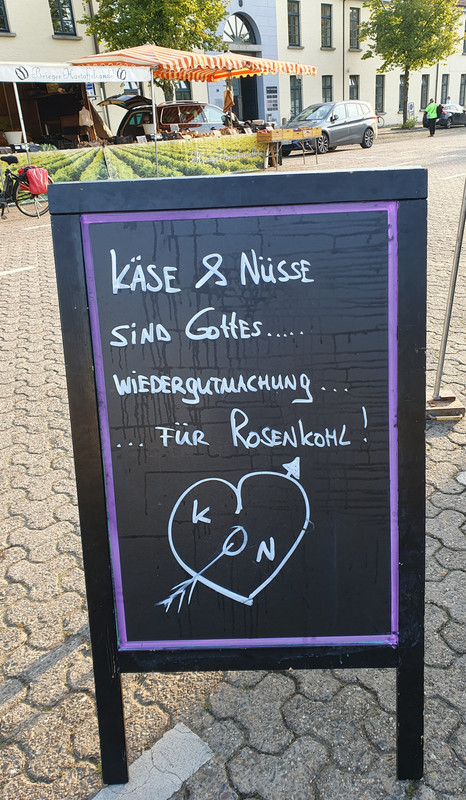 KÄSE & NÜSSE
SIND GOTTES.....
WIEDERGUTMACHUNG...
... FÜR ROSENKOHL!
K
N